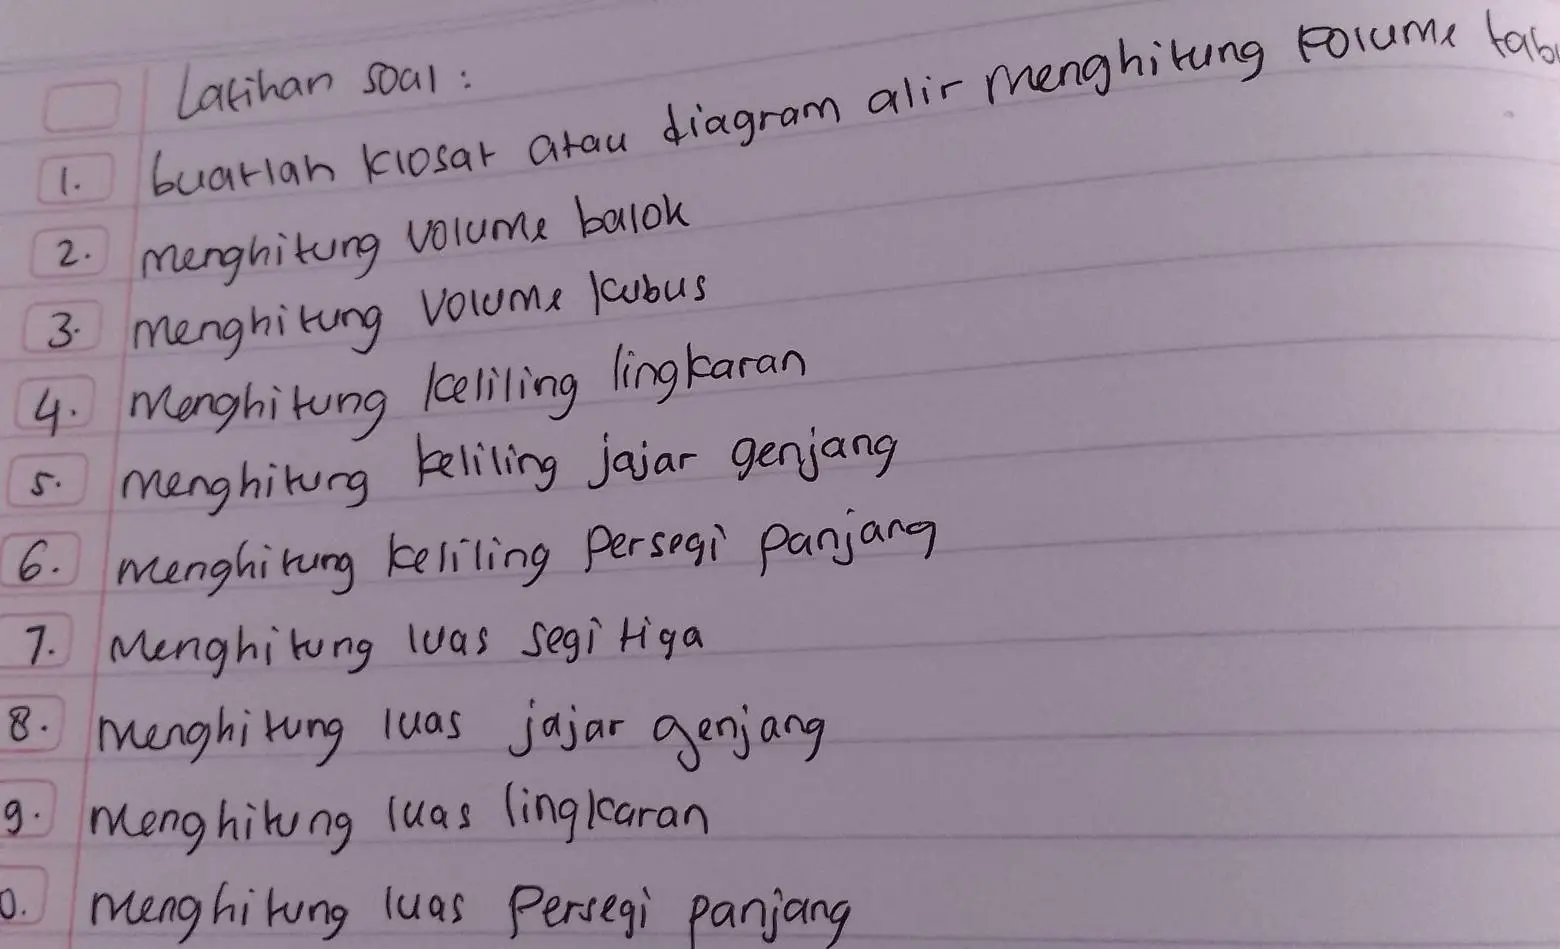 Latihan soal :
1. buatlah klosat atau diagram alir menghitung volume
2. menghitung volume balok
3. menghitung volume kubus
4. menghitung keliling lingkaran
5. menghitung keliling jajar genjang
6. menghitung keliling persegi panjang
7. menghitung luas segitiga
8. menghitung luas jajar genjang
9. menghitung luas lingkaran
0. menghitung luas persegi panjang